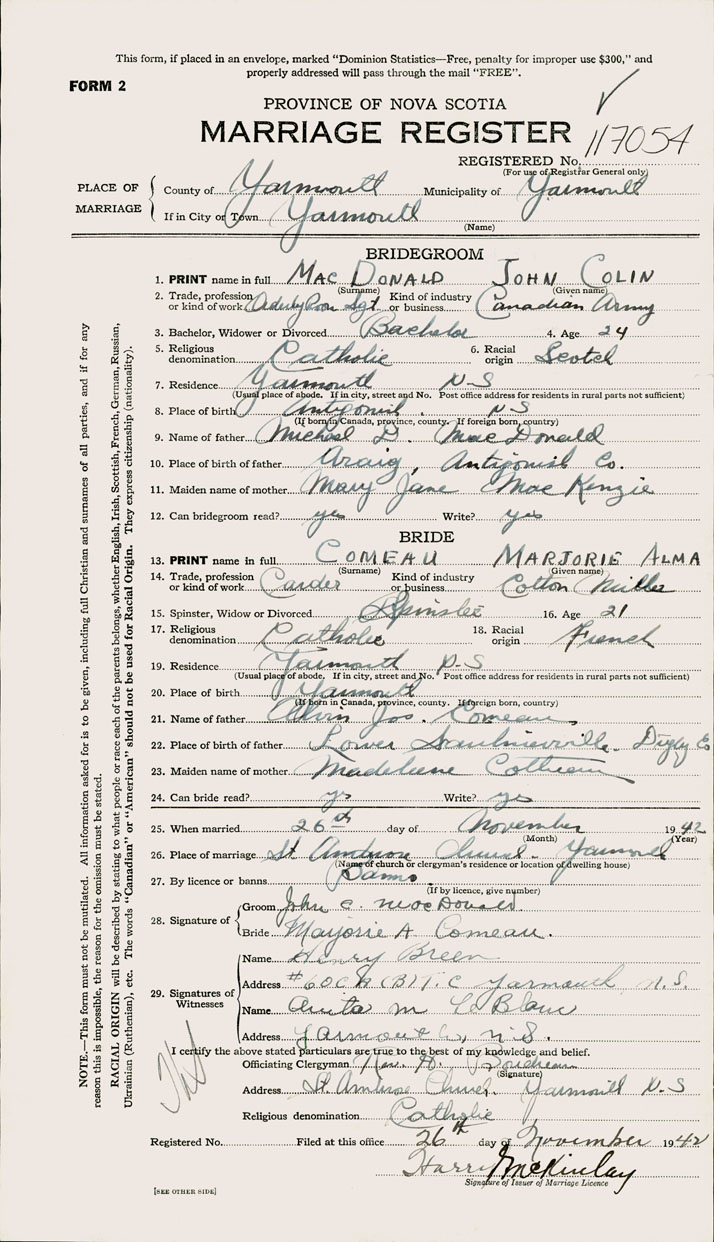 This form, if placed in an envelope, marked “Dominion Statistics—Free, penalty for improper use $300,” and
properly addressed will pass through the mail “FREE”.
FORM 2
PROVINCE OF NOVA SCOTIA
MARRIAGE REGISTER
REGISTERED No. 117054
(For use of Registrar General only)
PLACE OF MARRIAGE
County of Yarmouth Municipality of Yarmouth
If in City or Town Yarmouth
(Name)
BRIDEGROOM
1. PRINT name in full MAC DONALD JOHN COLIN
(Surname) (Given name)
2. Trade, profession or kind of work Sgt. Kind of industry or business Canadian Army
3. Bachelor, Widower or Divorced Bachelor 4. Age 24
5. Religious denomination Catholic 6. Racial origin Scotch
7. Residence Yarmouth N-S
(Usual place of abode. If in city, street and No. Post office address for residents in rural parts not sufficient)
8. Place of birth Antigonish, N-S
(If born in Canada, province, county. If foreign born, country)
9. Name of father Michael D. MacDonald
10. Place of birth of father Araig, Antigonish Co.
11. Maiden name of mother Mary Jane MacKenzie
12. Can bridegroom read? yes Write? yes
BRIDE
13. PRINT name in full COMEAU MARJORIE ALMA
(Surname) (Given name)
14. Trade, profession or kind of work Carder Kind of industry or business Cotton Mills
15. Spinster, Widow or Divorced Spinster 16. Age 21
17. Religious denomination Catholic 18. Racial origin French
19. Residence Yarmouth N-S
(Usual place of abode. If in city, street and No. Post office address for residents in rural parts not sufficient)
20. Place of birth Yarmouth
(If born in Canada, province, county. If foreign born, country)
21. Name of father Alvin Jos. Comeau
22. Place of birth of father Lower Saulnierville. Digby Co
23. Maiden name of mother Madeleine
24. Can bride read? yes Write? yes
25. When married 26th day of November 1942
(Month) (Year)
26. Place of marriage St Ambrose Church. Yarmouth
(Name of church or clergyman's residence or location of dwelling house)
27. By licence or banns Banns
(If by licence, give number)
28. Signature of
Groom John C. MacDonald
Bride Marjorie A Comeau.
29. Signatures of Witnesses
Name Henry Breen
Address #60 C.A.(B)T.C Yarmouth N.S.
Name Anita M LeBlanc
Address Yarmouth, N.S.
I certify the above stated particulars are true to the best of my knowledge and belief.
Officiating Clergyman Rev.
(Signature)
Address St. Ambrose Church. Yarmouth N-S
Religious denomination Catholic
Registered No. Filed at this office 26th day of November 1942
Harry McKinlay
Signature of Issuer of Marriage Licence
[SEE OTHER SIDE]
NOTE.—This form must not be mutilated. All information asked for is to be given, including full Christian and surnames of all parties, and if for any
reason this is impossible, the reason for the omission must be stated.
RACIAL ORIGIN will be described by stating to what people or race each of the parents belongs, whether English, Irish, Scottish, French, German, Russian,
Ukrainian (Ruthenian), etc. The words “Canadian” or “American” should not be used for Racial Origin. They express citizenship (nationality).